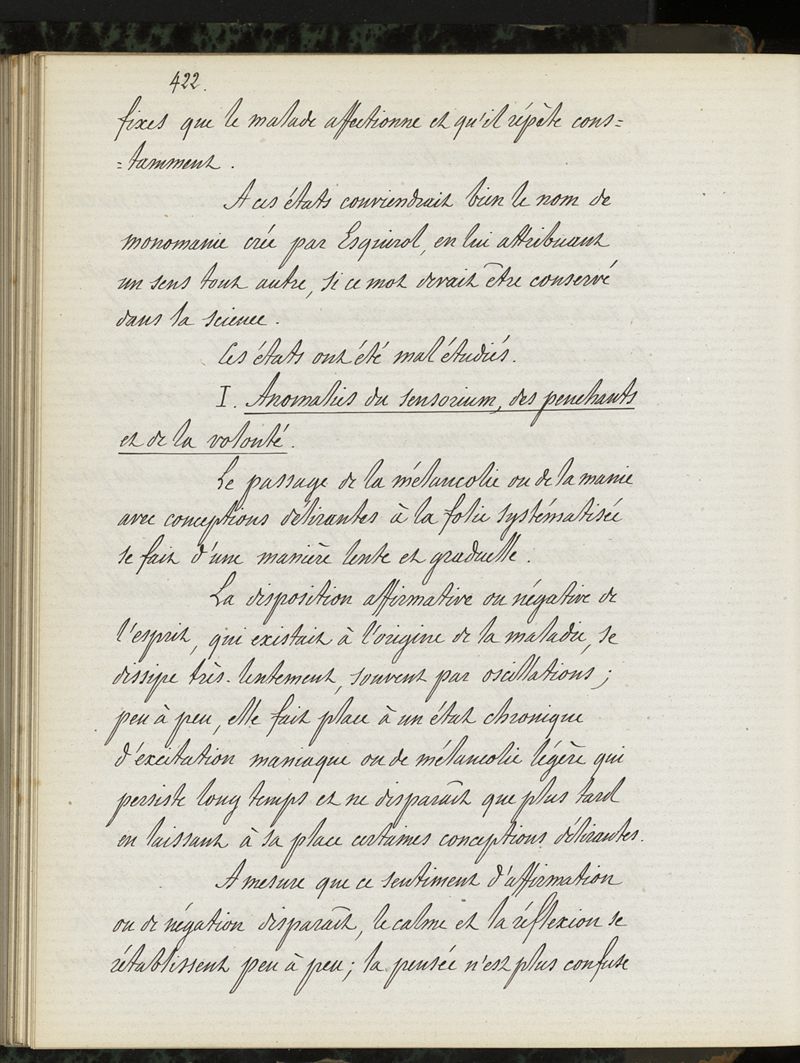 422.
fixes que le malade affectionne et qu'il répète cons=
=tamment.
A ces états conviendrait bien le nom de
monomanie crée par Esquirol, en lui attribuant
un sens tout autre, si ce mot devait être conservé
dans la science.
Ces états ont été mal étudiés.
I. Anomalies du sensorium, des penchants
et de la volonté.
Le passage de la mélancolie ou de la manie
avec conceptions délirantes à la folie systématisée
se fait d'une manière lente et graduelle.
La disposition affirmative ou négative de
l'esprit, qui existait à l'origine de la maladie, se
dissipe très-lentement, souvent par oscillations;
peu à peu, elle fait place à un état chronique
d'excitation maniaque ou de mélancolie légère qui
persiste long temps et ne disparaît que plus tard
en laissant à sa place certaines conceptions délirantes.
A mesure que ce sentiment d'affirmation
ou de négation disparaît, le calme et la réflexion se
rétablissent peu à peu; la pensée n'est plus confuse